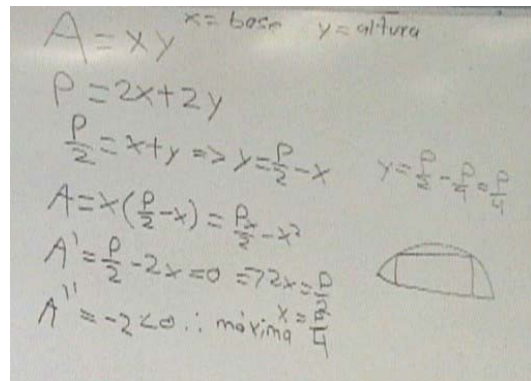 A = xy   x = base   y = altura
P = 2x + 2y
P/2 = x + y => y = P/2 - x
y = P/2 - P/4 = P/4
A = x(P/2 - x) = Px/2 - x²
A' = P/2 - 2x = 0 => 2x = P/2
x = P/4
A'' = -2 < 0 ∴ máxima